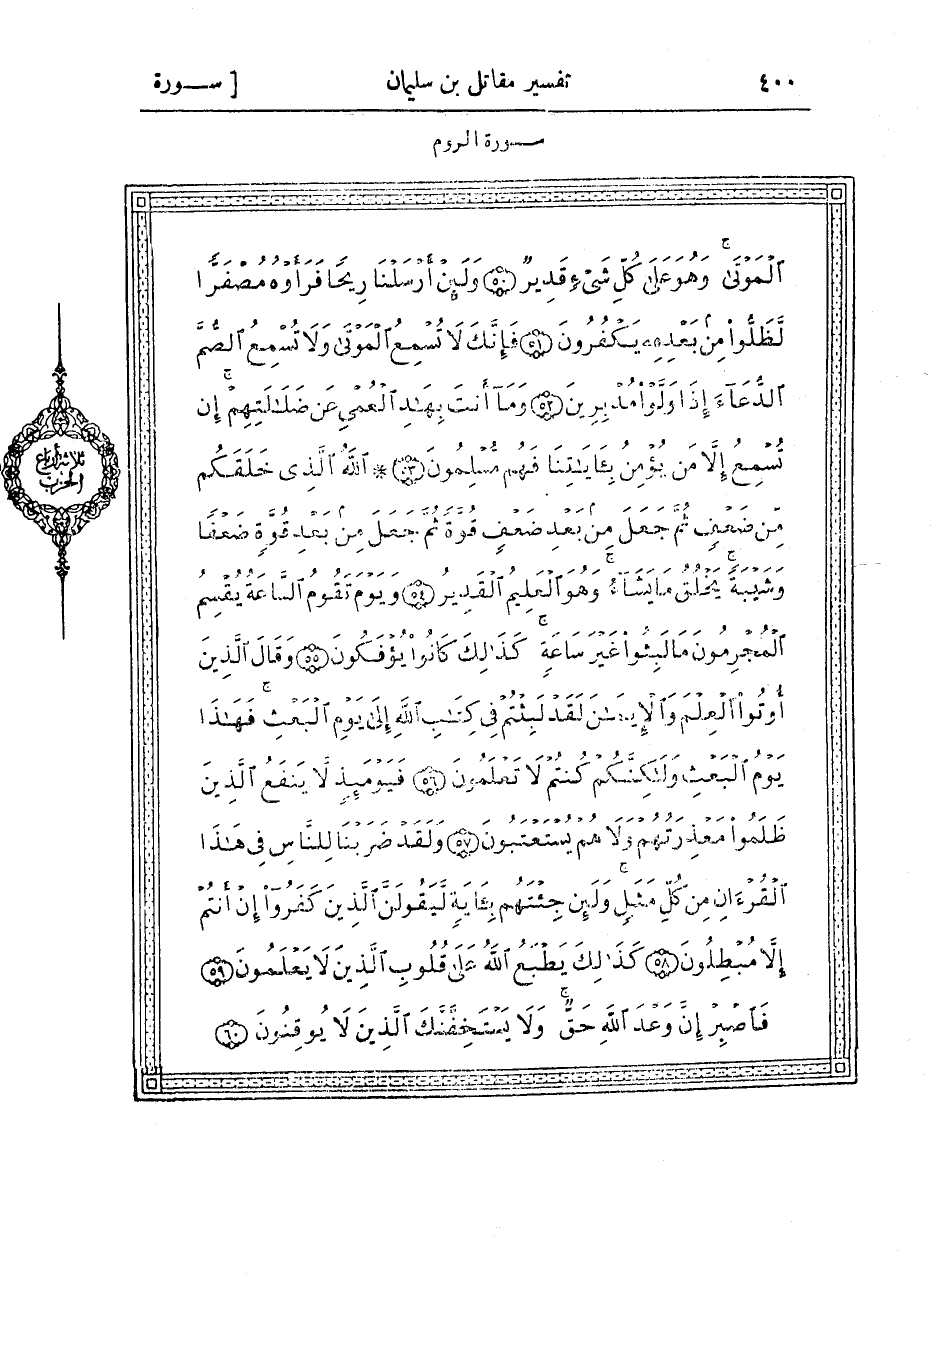 ٤٠٠
تفسير مقاتل بن سليمان
[ ســورة
ســورة الروم
ٱلْمَوْتَىٰ ۚ وَهُوَ عَلَىٰ كُلِّ شَىْءٍ قَدِيرٌ ﴿٥٠﴾ وَلَئِنْ أَرْسَلْنَا رِيحًا فَرَأَوْهُ مُصْفَرًّا
لَّظَلُّوا۟ مِنۢ بَعْدِهِۦ يَكْفُرُونَ ﴿٥١﴾ فَإِنَّكَ لَا تُسْمِعُ ٱلْمَوْتَىٰ وَلَا تُسْمِعُ ٱلصُّمَّ
ٱلدُّعَآءَ إِذَا وَلَّوْا۟ مُدْبِرِينَ ﴿٥٢﴾ وَمَآ أَنتَ بِهَـٰدِ ٱلْعُمْىِ عَن ضَلَـٰلَتِهِمْ ۖ إِن
تُسْمِعُ إِلَّا مَن يُؤْمِنُ بِـَٔايَـٰتِنَا فَهُم مُّسْلِمُونَ ﴿٥٣﴾ * ٱللَّهُ ٱلَّذِى خَلَقَكُم
مِّن ضَعْفٍ ثُمَّ جَعَلَ مِنۢ بَعْدِ ضَعْفٍ قُوَّةً ثُمَّ جَعَلَ مِنۢ بَعْدِ قُوَّةٍ ضَعْفًا
وَشَيْبَةً ۚ يَخْلُقُ مَا يَشَآءُ ۚ وَهُوَ ٱلْعَلِيمُ ٱلْقَدِيرُ ﴿٥٤﴾ وَيَوْمَ تَقُومُ ٱلسَّاعَةُ يُقْسِمُ
ٱلْمُجْرِمُونَ مَا لَبِثُوا۟ غَيْرَ سَاعَةٍ ۚ كَذَٰلِكَ كَانُوا۟ يُؤْفَكُونَ ﴿٥٥﴾ وَقَالَ ٱلَّذِينَ
أُوتُوا۟ ٱلْعِلْمَ وَٱلْإِيمَـٰنَ لَقَدْ لَبِثْتُمْ فِى كِتَـٰبِ ٱللَّهِ إِلَىٰ يَوْمِ ٱلْبَعْثِ ۖ فَهَـٰذَا
يَوْمُ ٱلْبَعْثِ وَلَـٰكِنَّكُمْ كُنتُمْ لَا تَعْلَمُونَ ﴿٥٦﴾ فَيَوْمَئِذٍ لَّا يَنفَعُ ٱلَّذِينَ
ظَلَمُوا۟ مَعْذِرَتُهُمْ وَلَا هُمْ يُسْتَعْتَبُونَ ﴿٥٧﴾ وَلَقَدْ ضَرَبْنَا لِلنَّاسِ فِى هَـٰذَا
ٱلْقُرْءَانِ مِن كُلِّ مَثَلٍ ۚ وَلَئِن جِئْتَهُم بِـَٔايَةٍ لَّيَقُولَنَّ ٱلَّذِينَ كَفَرُوٓا۟ إِنْ أَنتُمْ
إِلَّا مُبْطِلُونَ ﴿٥٨﴾ كَذَٰلِكَ يَطْبَعُ ٱللَّهُ عَلَىٰ قُلُوبِ ٱلَّذِينَ لَا يَعْلَمُونَ ﴿٥٩﴾
فَٱصْبِرْ إِنَّ وَعْدَ ٱللَّهِ حَقٌّ ۖ وَلَا يَسْتَخِفَّنَّكَ ٱلَّذِينَ لَا يُوقِنُونَ ﴿٦٠﴾
ثلاثة أرباع
الحزب